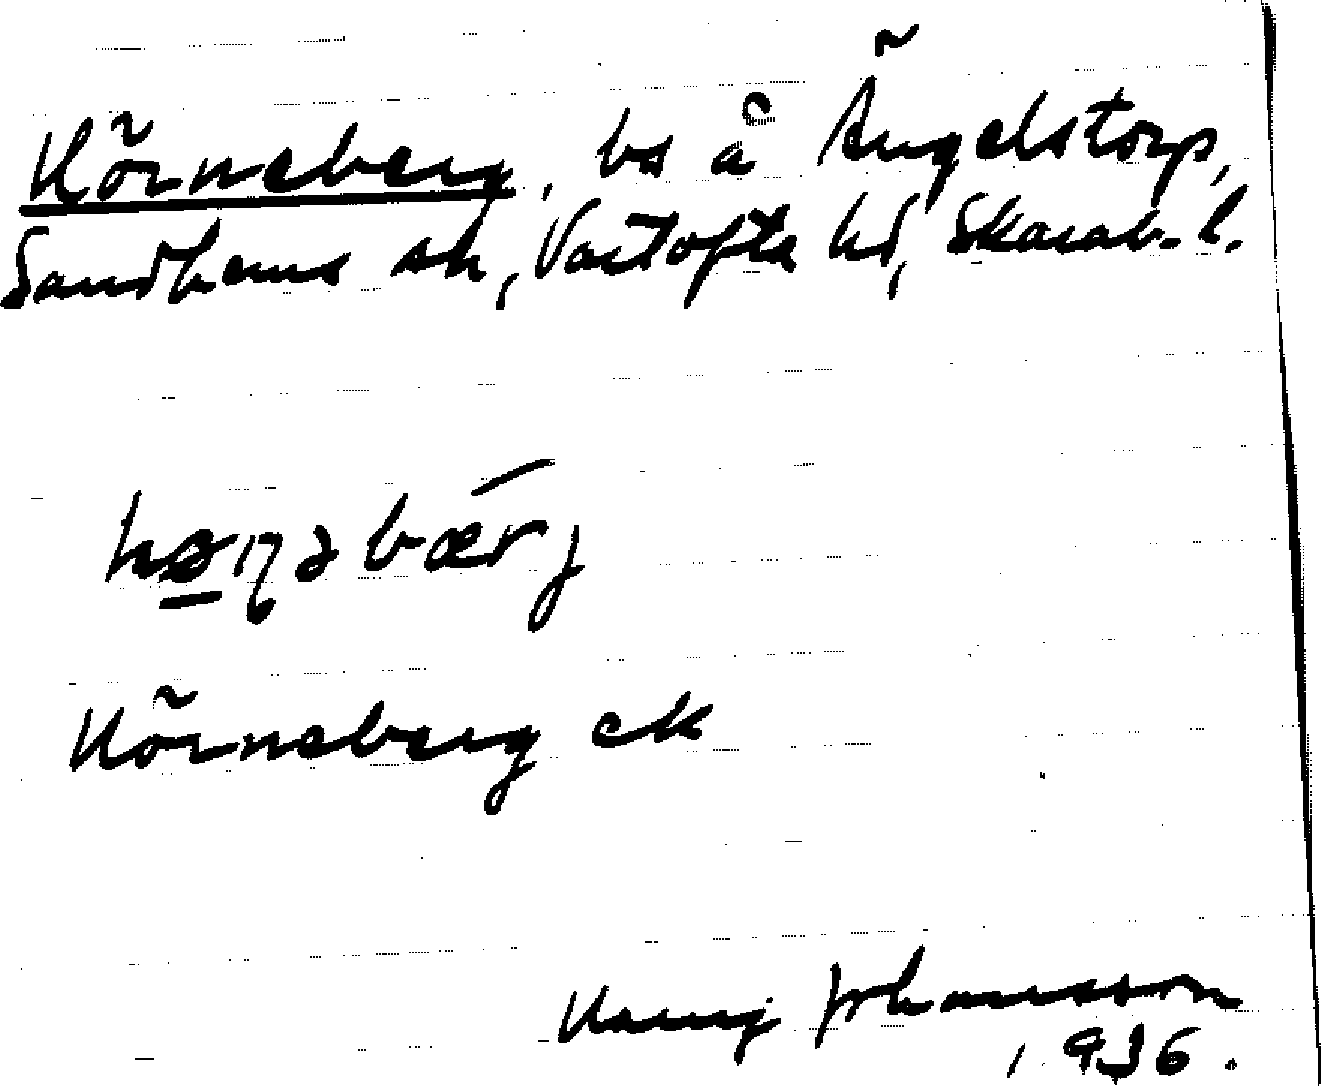 Hörneberg, bs å Ängelstorp,
Sandhems sn, Vartofta hd, Skarab. l.
hø̱ɳəbærj
Hörneberg ek
Harry Johansson
1936.